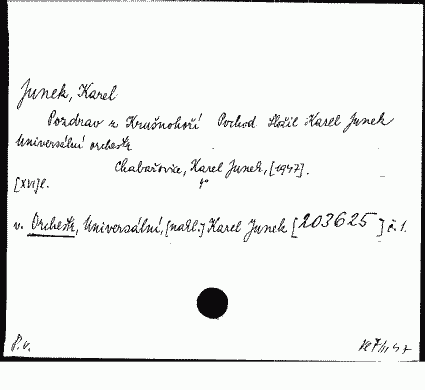 Junek, Karel
Pozdrav z Krušnohoří Pochod Složil Karel Junek
Universální orchestr
Chabařovice, Karel Junek, [1947].
[XVI]l. 4°
v. Orchestr, Universální, [nakl.] Karel Junek [203625] č. 1.
P.v.